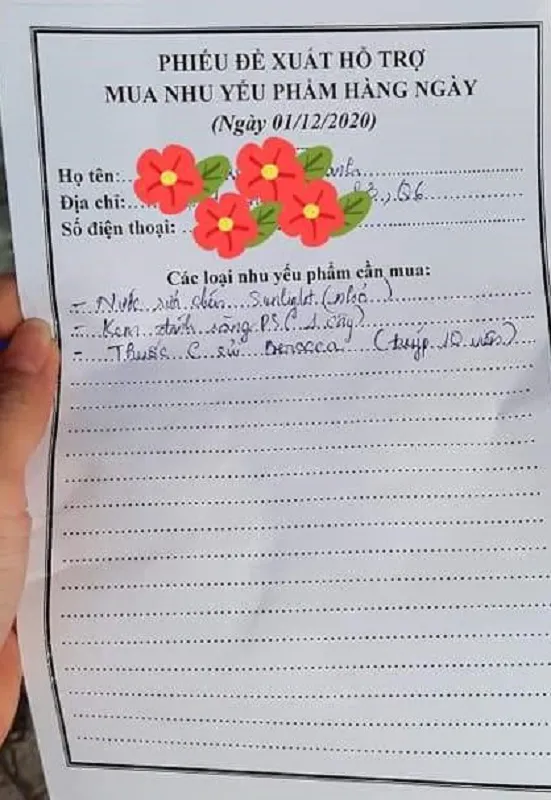 PHIẾU ĐỀ XUẤT HỖ TRỢ
MUA NHU YẾU PHẨM HÀNG NGÀY
(Ngày 01/12/2020)
Họ tên:
Địa chỉ: 3, Q6
Số điện thoại:
Các loại nhu yếu phẩm cần mua:
- Nước rửa chén Sunlight (nhỏ)
- Kem đánh răng P.S (1 cây)
- Thuốc C sủi Berocca (tuýp 10 viên)